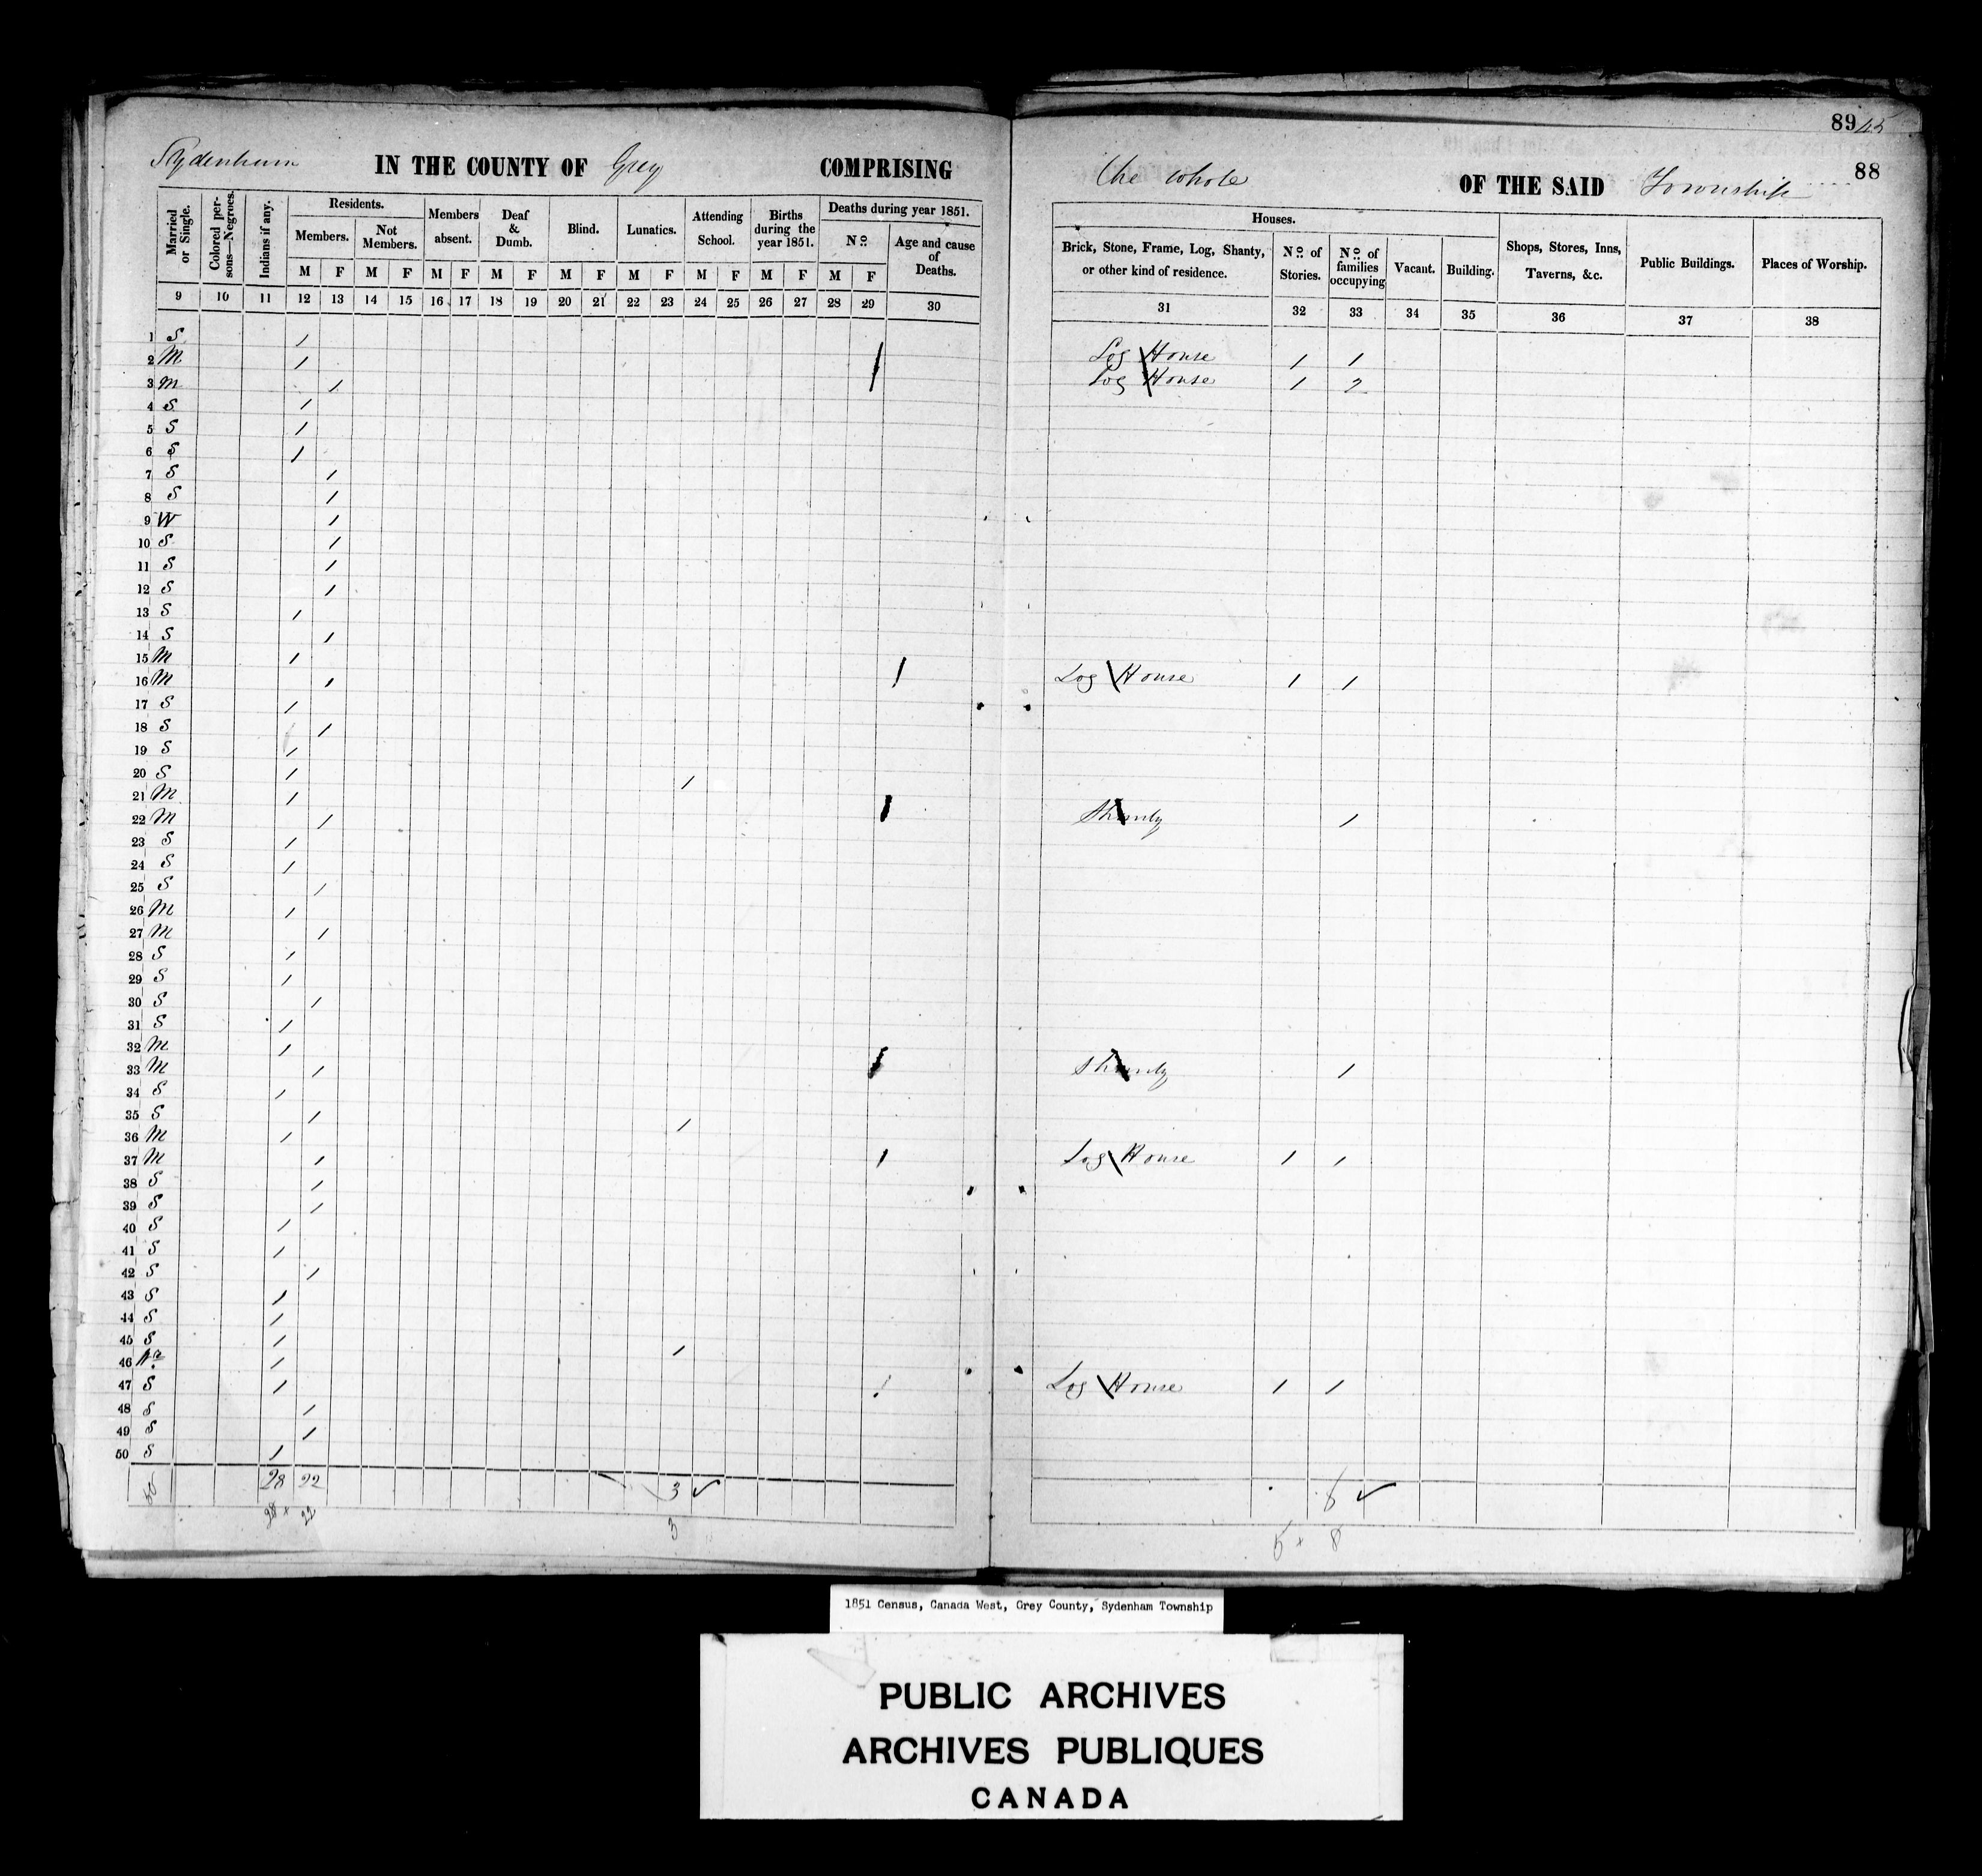 89 45
Sydenham IN THE COUNTY OF Grey COMPRISING the whole OF THE SAID Township 88
Married or Single. Colored persons—Negroes. Indians if any. Residents. Members absent. Deaf & Dumb. Blind. Lunatics. Attending School. Births during the year 1851. Deaths during year 1851.
Members. Not Members. No. Age and cause of Deaths.
M F M F M F M F M F M F M F M F M F
9 10 11 12 13 14 15 16 17 18 19 20 21 22 23 24 25 26 27 28 29 30
Houses. Shops, Stores, Inns, Taverns, &c. Public Buildings. Places of Worship.
Brick, Stone, Frame, Log, Shanty, or other kind of residence. No. of Stories. No. of families occupying Vacant. Building.
31 32 33 34 35 36 37 38
1 S 1
2 M 1 1 Log House 1 1
3 M 1 Log House 1 2
4 S 1
5 S 1
6 S 1
7 S 1
8 S 1
9 W 1
10 S 1
11 S 1
12 S 1
13 S 1
14 S 1
15 M 1
16 M 1 1 Log House 1 1
17 S 1
18 S 1
19 S 1
20 S 1 1
21 M 1
22 M 1 1 Shanty 1
23 S 1
24 S 1
25 S 1
26 M 1
27 M 1
28 S 1
29 S 1
30 S 1
31 S 1
32 M 1
33 M 1 1 Shanty 1
34 S 1
35 S 1 1
36 M 1
37 M 1 1 Log House 1 1
38 S 1
39 S 1
40 S 1
41 S 1
42 S 1
43 S 1
44 S 1
45 S 1 1
46 1
47 S 1 1 Log House 1 1
48 S 1
49 S 1
50 S 1
50 28 22 3 ✓ ✓
28 x 22 3 5 x 8
1851 Census, Canada West, Grey County, Sydenham Township
PUBLIC ARCHIVES
ARCHIVES PUBLIQUES
CANADA